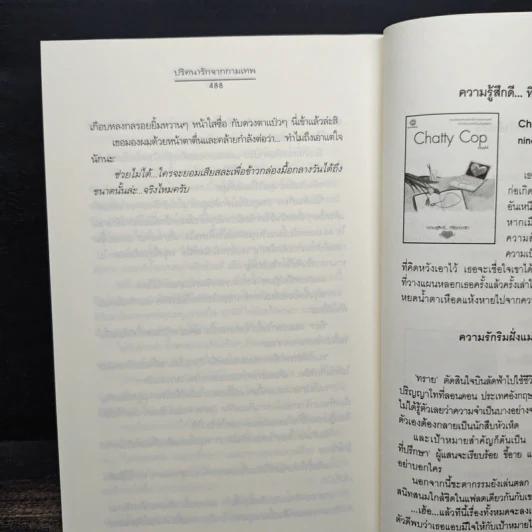 ปริศนารักจากกามเทพ
488
เกือบหลงกลรอยยิ้มหวานๆ หน้าใสซื่อ กับดวงตาแป๋วๆ นี่เข้าแล้วล่ะสิ
เธอมองผมด้วยหน้าตาตื่นและคล้ายกำลังต่อว่า... ทำไมถึงเอาแต่ใจ
นักนะ
ช่วยไม่ได้...ใครจะยอมเสียสละเพื่อข้าวกล่องมื้อกลางวันได้ถึง
ขนาดนั้นล่ะ...จริงไหมครับ
ความรู้สึกดี... ที
Chatty Cop
Ch
nin
เธ
ก่อเกิด
อันเหนี
หากเมื
ความสั
ความเป็
ที่คิดหวังเอาไว้ เธอจะเชื่อใจเขาได้
ที่วางแผนหลอกเธอครั้งแล้วครั้งเล่าใ
หยดน้ำตาเหือดแห้งหายไปจากควา
ความรักริมฝั่งแม
'ทราย' ตัดสินใจบินลัดฟ้าไปใช้ชีวิ
ปริญญาโทที่ลอนดอน ประเทศอังกฤษ
ไม่ได้รู้ตัวเลยว่าความจำเป็นบางอย่างจ
ตัวเองต้องกลายเป็นนักสืบหัวเห็ด
และเป้าหมายสำคัญก็ดันเป็น
ที่ปรึกษา' ผู้แสนจะเรียบร้อย ขี้อาย แ
อย่าบอกใคร
นอกจากนี้ชะตากรรมยังเล่นตลก
สนิทสนมใกล้ชิดในแฟลตเดียวกันกับเข
...เฮ้อ...แล้วทีนี้เรื่องทั้งหมดจะลง
ตัวดีพบว่าเธอแอบมีใจให้กับเป้าหมาย